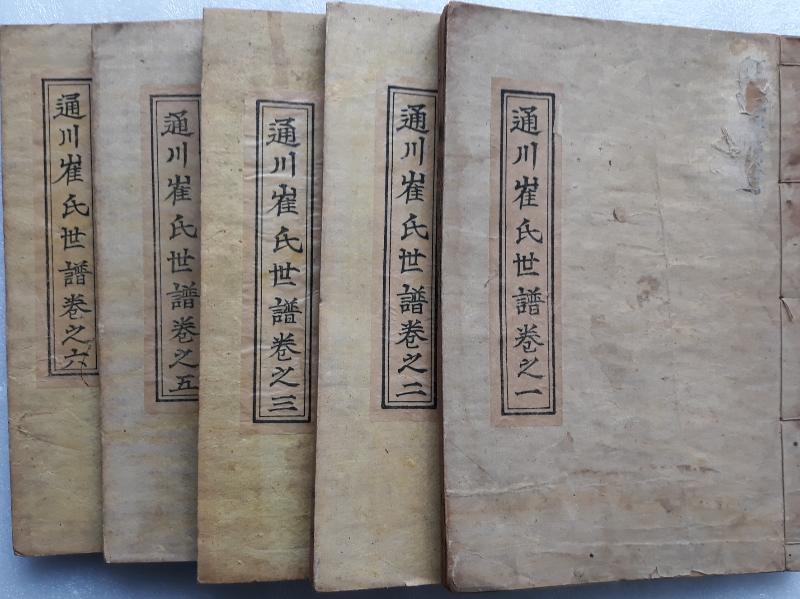 通川崔氏世譜卷之一
通川崔氏世譜卷之二
通川崔氏世譜卷之三
通川崔氏世譜卷之五
通川崔氏世譜卷之六